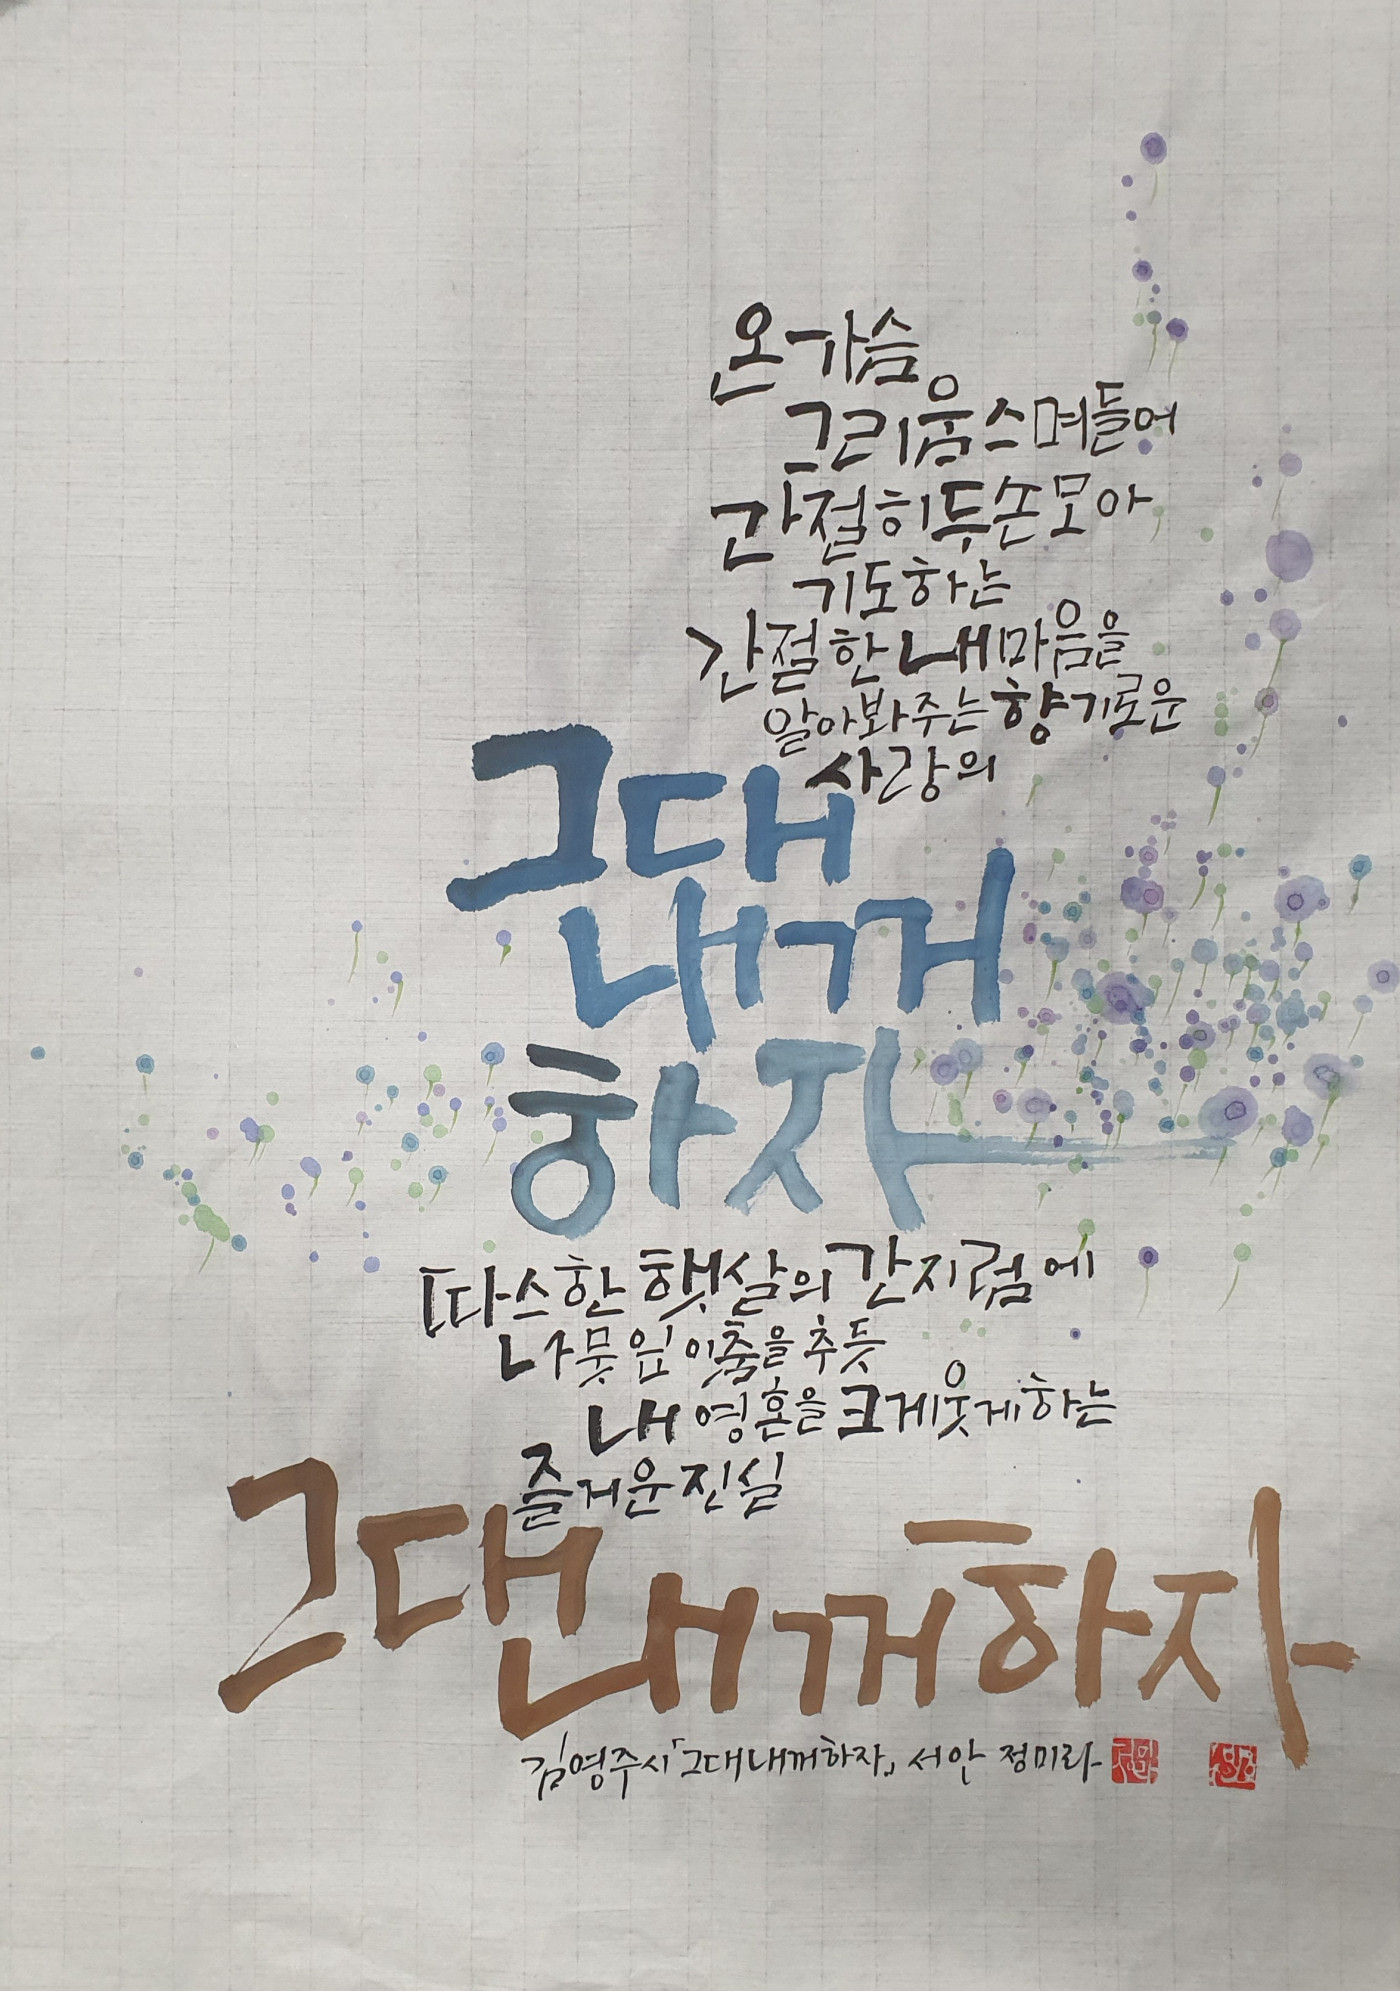 온 가슴
그리움 스며들어
간절히 두손 모아
기도하는
간절한 내 마음을
알아봐 주는 향기로운
사랑의
그대
내꺼
하자
따스한 햇살의 간지럼에
나뭇잎이 춤을 추듯
내 영혼을 크게 웃게 하는
즐거운 진실
그대 내꺼 하자
김영주 시 「그대 내꺼하자」 서안 정미라